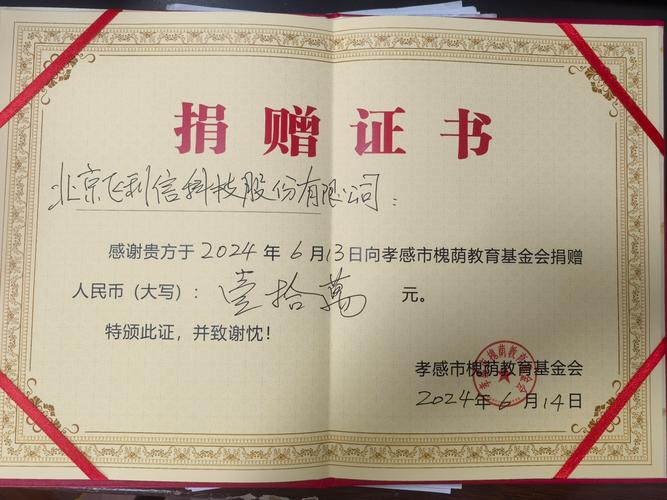 捐赠证书
北京飞利信科技股份有限公司:
感谢贵方于2024年6月13日向孝感市槐荫教育基金会捐赠
人民币（大写）：壹拾萬元。
特颁此证，并致谢忱！
孝感市槐荫教育基金会
孝感市槐荫教育基金会
2024年6月14日